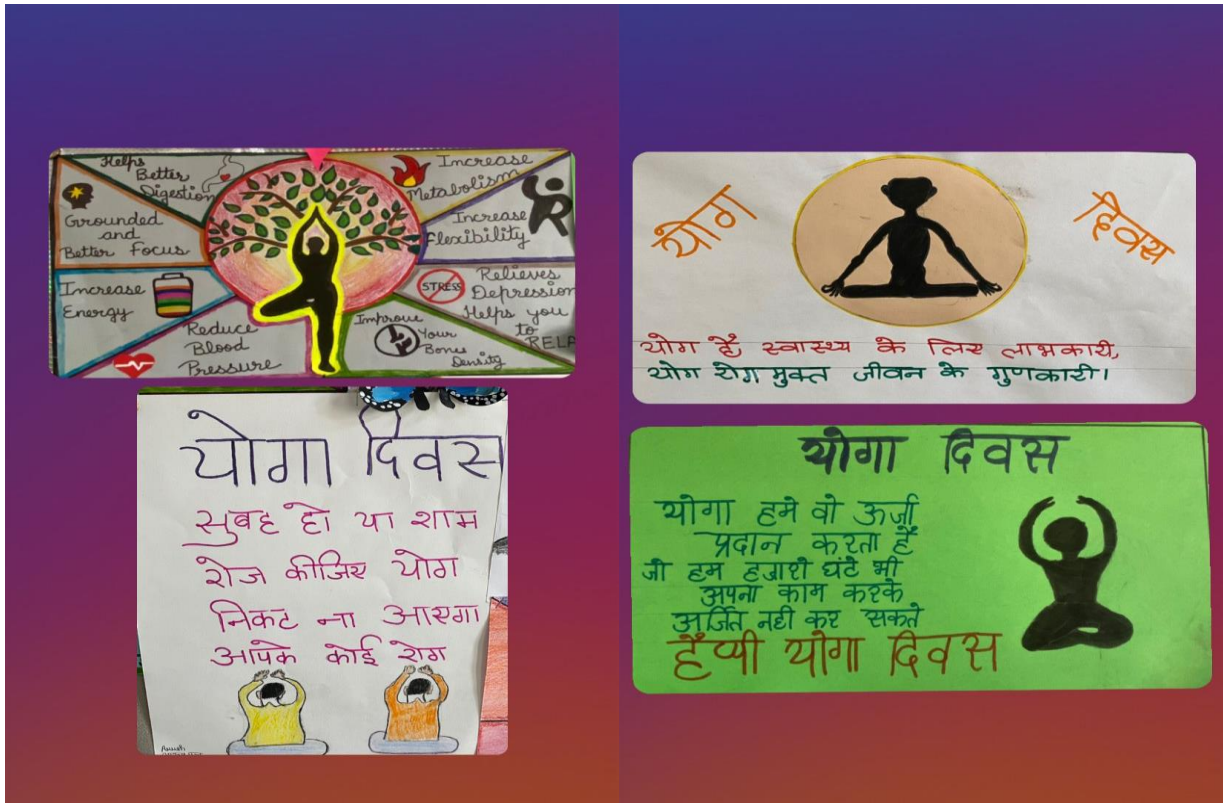 Helps
Better
Digestion
Grounded
and
Better Focus
Increase
Energy
Reduce
Blood
Pressure
Increase
Metabolism
Increase
Flexibility
STRESS
Relieves
Depression
Helps you
to
RELA
Improve
Your
Bones
Density
योगा दिवस
सुबह हो या शाम
रोज कीजिए योग
निकट ना आएगा
आपके कोई रोग
योग दिवस
योग है स्वास्थ्य के लिए लाभकारी,
योग रोग मुक्त जीवन के गुणकारी।
योगा दिवस
योगा हमे वो ऊर्जा
प्रदान करता हैं
जो हम हजारो घंटे भी
अपना काम करके
अर्जित नही कर सकते
हैप्पी योगा दिवस